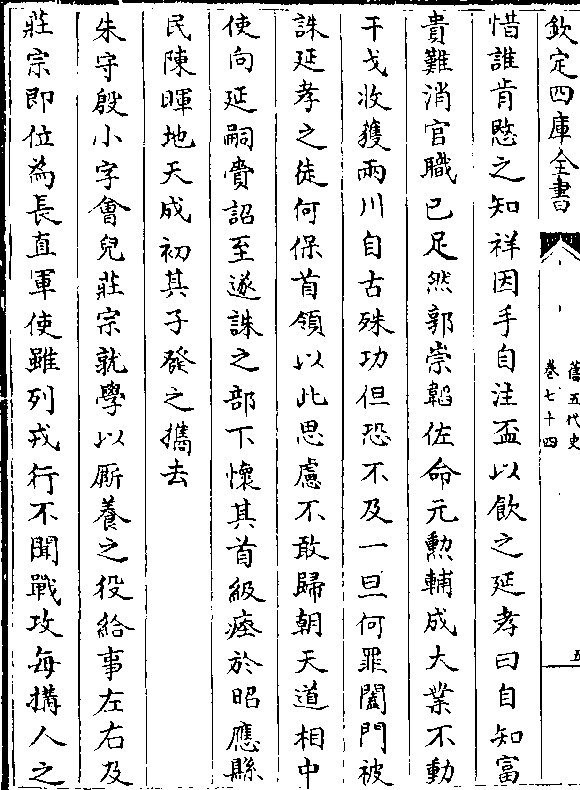 欽定四庫全書
舊五代史
卷七十四
五
惜誰肯愍之知祥因手自注盃以飲之延孝曰自知富
貴難消官職已足然郭崇韜佐命元勲輔成大業不動
干戈收獲兩川自古殊功但恐不及一旦何罪闔門被
誅延孝之徒何保首領以此思慮不敢歸朝天道相中
使向延嗣賫詔至遂誅之部下懷其首級瘞於昭應縣
民陳暉地天成初其子發之攜去
朱守殷小字㑹兒莊宗就學以厮養之役給事左右及
莊宗即位為長直軍使雖列戎行不聞戰攻每搆人之